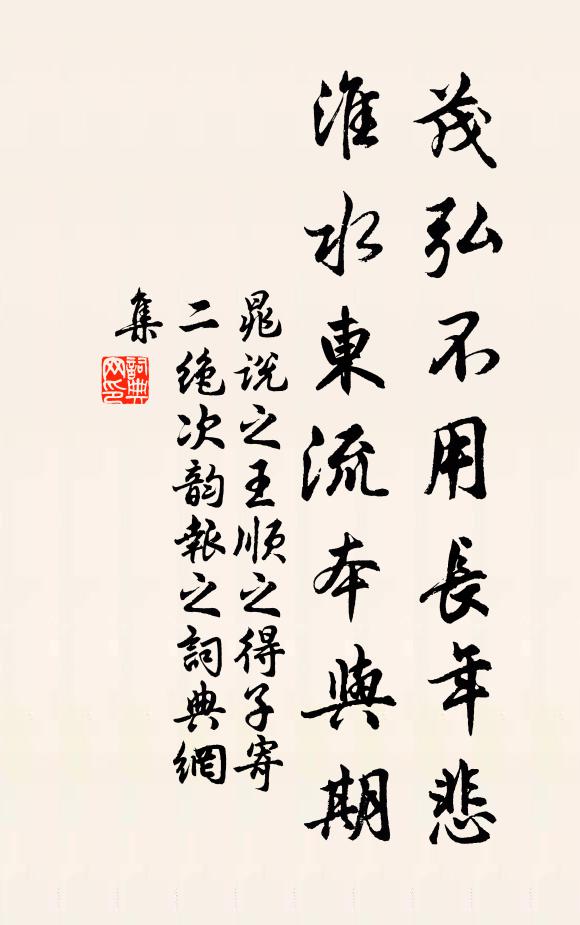 茂弘不用長年悲
淮水東流本與期
晁說之王順之得子寄
二絶次韵報之詞典網
集
詞典網印